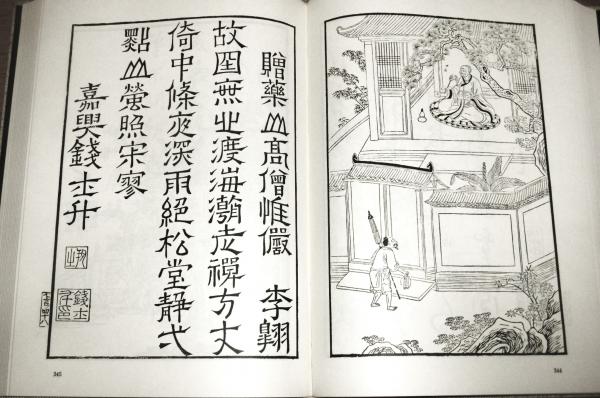 贈藥山高僧惟儼 李翶
故囯無心渡海潮老禪方丈
倚中條夜深雨絕松堂靜弌
點山螢照寂寥
嘉興錢士升
345
344